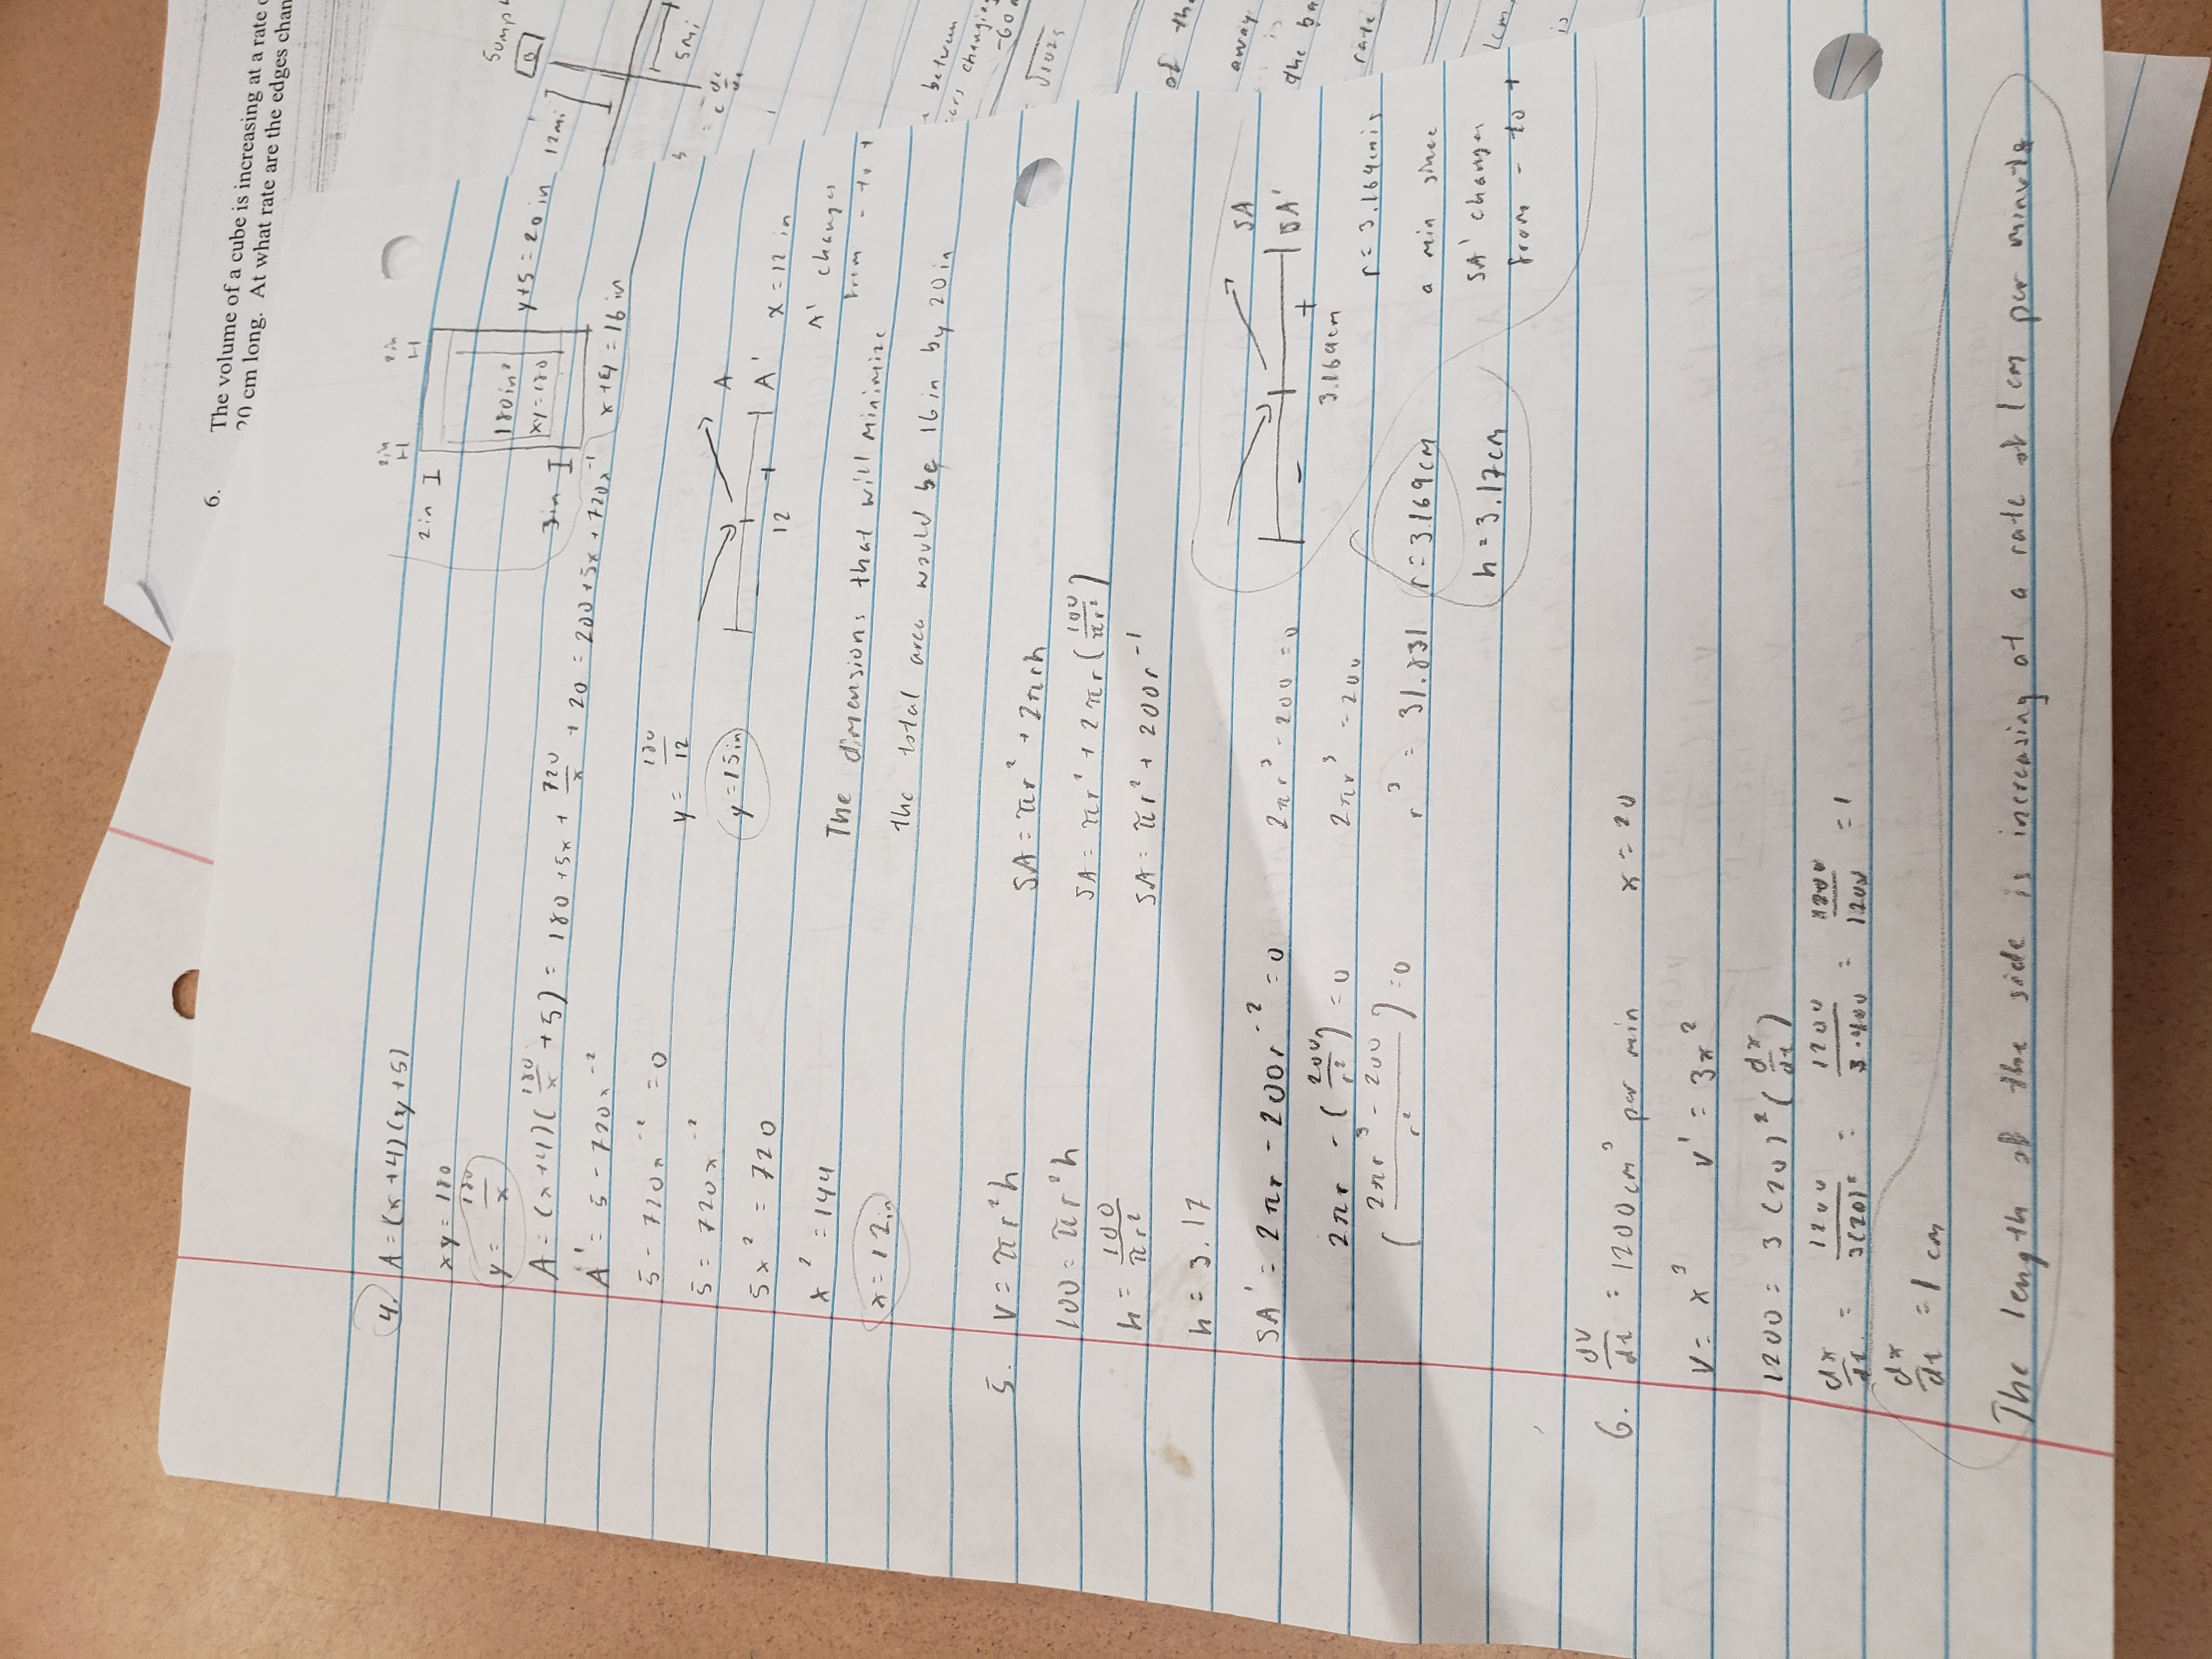 6. The volume of a cube is increasing at a rate
20 cm long. At what rate are the edges chan
4. A = (x+4)(y+5)
xy = 180
y = 180/x
A = (x+4)(180/x + 5) = 180 + 5x + 720/x + 20 = 200 + 5x + 720x⁻¹
A' = 5 - 720x⁻²
5 - 720x⁻² = 0
5 = 720x⁻²
5x² = 720
x² = 144
x = 12in
2in
2in
2in
180in²
xy=180
3in
y+5 = 20 in
x+4 = 16 in
y = 180/12
y = 15in
A
A'
- 12 +
x = 12 in
A' changes
from - to +
The dimensions that will minimize
the total area would be 16 in by 20 in
5. V = πr²h
100 = πr²h
h = 100/πr²
h = 3.17
SA = πr² + 2πrh
SA = πr² + 2πr(100/πr²)
SA = πr² + 200r⁻¹
SA' = 2πr - 200r⁻² = 0
2πr - (200/r²) = 0
(2πr³ - 200/r²) = 0
2πr³ - 200 = 0
2πr³ = 200
r³ = 31.831
r = 3.169cm
h = 3.17cm
SA
SA'
- +
3.169cm
r = 3.169cm is
a min since
SA' changes
from - to +
6. dV/dt = 1200cm³ per min x = 20
V = x³ V' = 3x²
1200 = 3(20)²(dx/dt)
dx/dt = 1200/3(20)² = 1200/3·400 = 1200/1200 = 1
dx/dt = 1 cm
The length of the side is increasing at a rate of 1 cm per minute
12mi
5mi
between
changing
-60
√1025
of the
away
is
the ba
rate
1cm
is